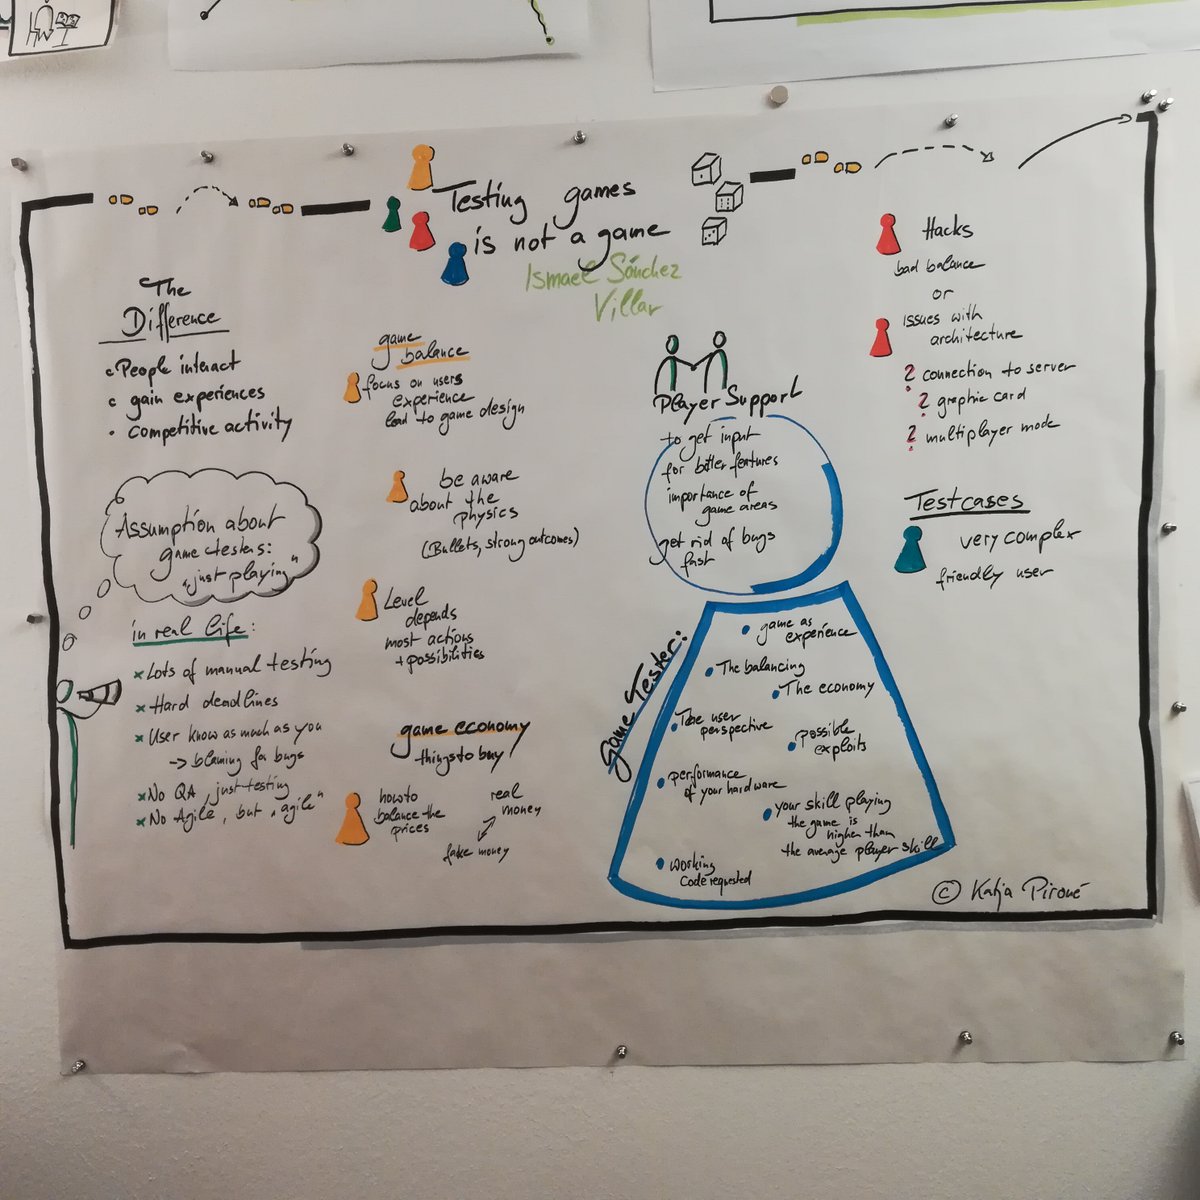 Testing games
is not a game
Ismael Sánchez
Villar
The
Difference
People interact
gain experiences
competitive activity
Assumption about
game testers:
"just playing"
in real life:
x Lots of manual testing
x Hard deadlines
x User know as much as you
-> blaming for bugs
x No QA, just testing
x No Agile, but "agile"
game
balance
focus on users
experience
lead to game design
be aware
about the
physics
(Bullets, strong outcomes)
Level
depends
most actions
+ possibilities
game economy
things to buy
how to
balance the
prices
real
money
fake money
Player Support
to get input
for better features
importance of
game areas
get rid of bugs
fast
Game Tester:
• game as
experience
• The balancing
• The economy
• The user
perspective
• possible
exploits
• performance
of your hardware
• your skill playing
the game is
higher than
the average player skill
• working
code requested
Hacks
bad balance
or
issues with
architecture
? connection to server
? graphic card
? multiplayer mode
Testcases
very complex
friendly user
© Katja Piroué